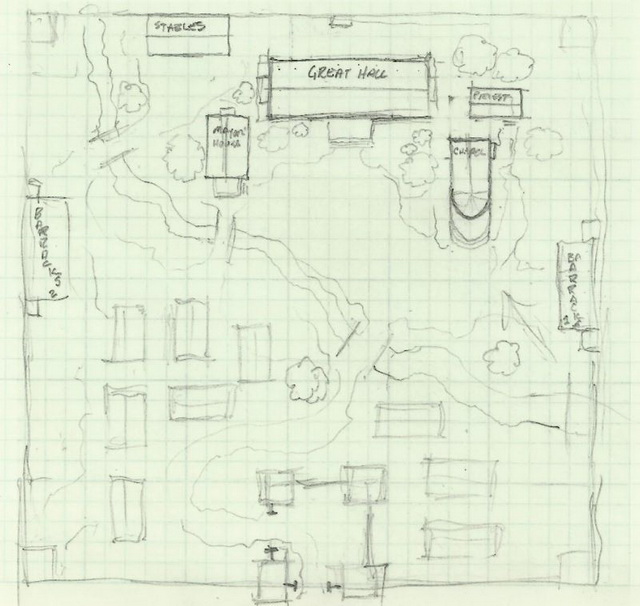 STABLES
GREAT HALL
PRIEST
HOUSE
CHAPEL
BARRACKS 2
BARRACKS 1